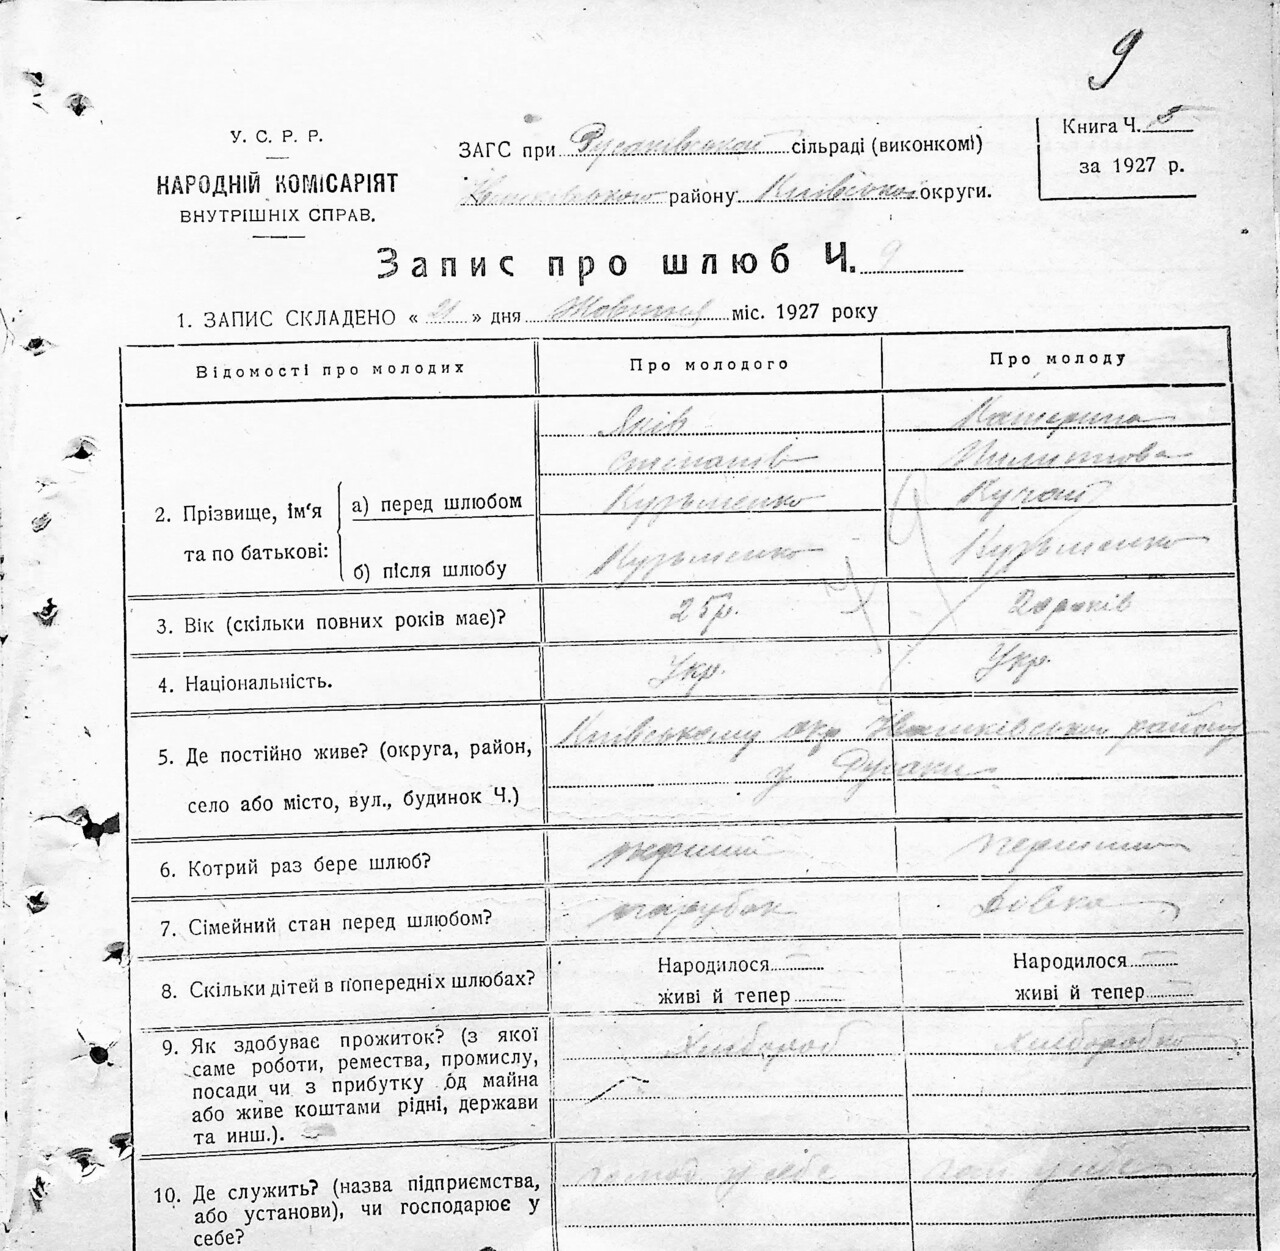 9
У. С. Р. Р.
НАРОДНІЙ КОМІСАРІЯТ
ВНУТРІШНІХ СПРАВ.
ЗАГС при Русаківській сільраді (виконкомі)
району Київської округи.
Книга Ч. 5
за 1927 р.
Запис про шлюб Ч. 9
1. ЗАПИС СКЛАДЕНО « 21 » дня Жовтня міс. 1927 року
Відомості про молодих
Про молодого
Про молоду
2. Прізвище, ім'я
та по батькові:
а) перед шлюбом
б) після шлюбу
Яків
Степанів
Кузьменко
Кузьменко
Катерина
Пилипова
Кучай
Кузьменко
3. Вік (скільки повних років має)?
25р.
років
4. Національність.
Укр.
Укр.
5. Де постійно живе? (округа, район,
село або місто, вул., будинок Ч.)
Київському окр. району
у Русаки
6. Котрий раз бере шлюб?
перший
перший
7. Сімейний стан перед шлюбом?
парубок
дівка
8. Скільки дітей в попередніх шлюбах?
Народилося
живі й тепер
Народилося
живі й тепер
9. Як здобуває прожиток? (з якої
саме роботи, ремества, промислу,
посади чи з прибутку од майна
або живе коштами рідні, держави
та инш.).
Хлібороб
Хлібробка
10. Де служить? (назва підприємства,
або установи), чи господарює у
себе?
господ у себе
госп у себе